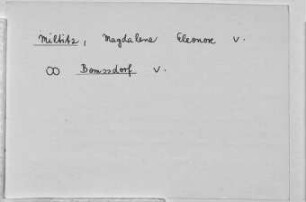 Miltitz, Magdalena Eleonore v.
∞ Bomsdorf v.